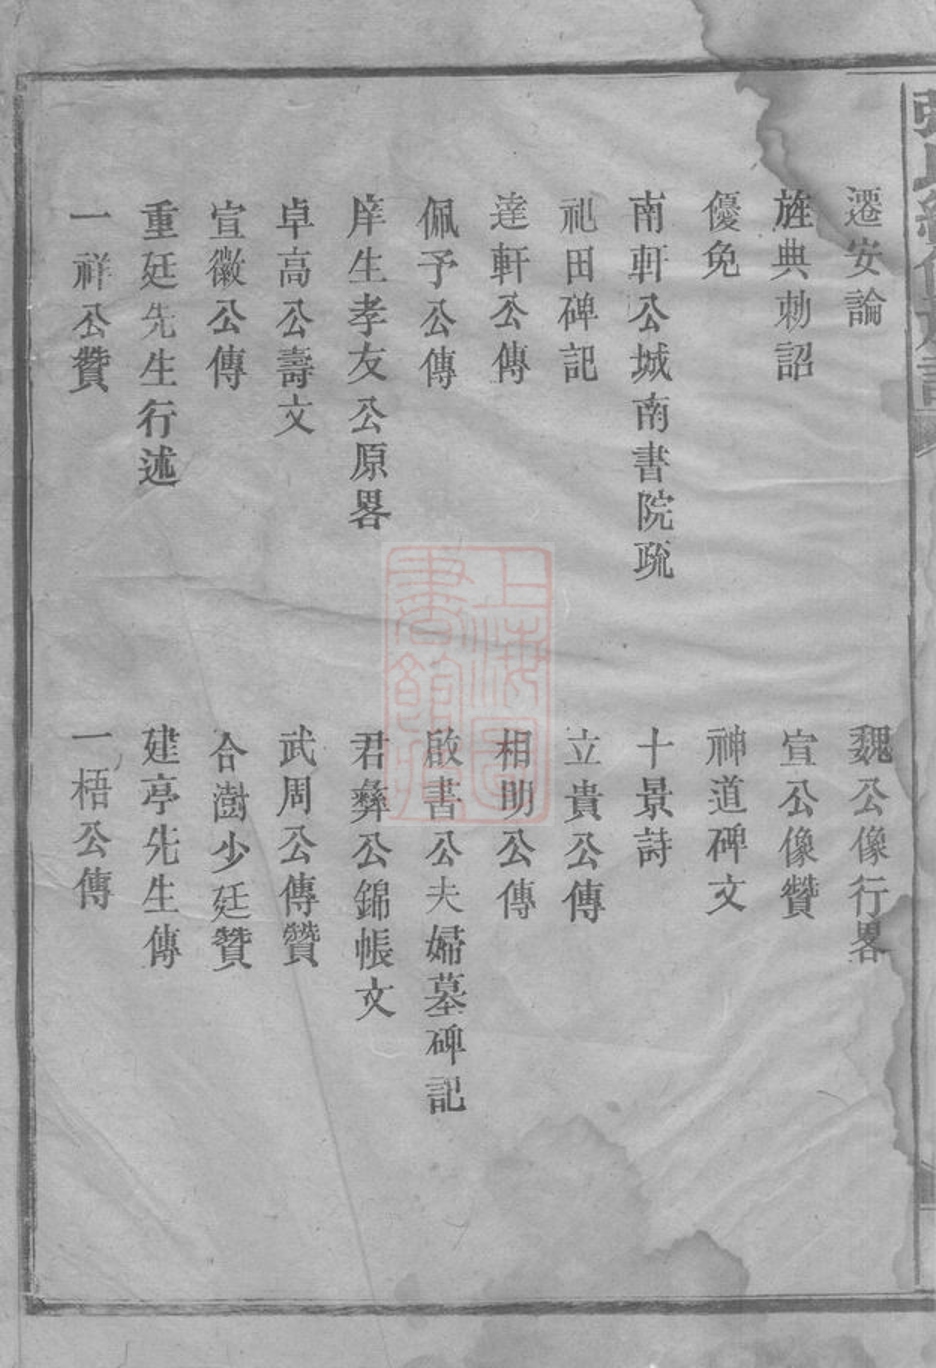 遷安論
魏公像行畧
旌典勅詔
宣公像贊
優免
神道碑文
南軒公城南書院疏
十景詩
祀田碑記
立貴公傳
達軒公傳
相明公傳
佩予公傳
啟書公夫婦墓碑記
庠生孝友公原畧
君彝公錦帳文
卓高公壽文
武周公傳贊
宣徽公傳
合澍少廷贊
重廷先生行述
建亭先生傳
一祥公贊
一梧公傳
上海圖
書館藏